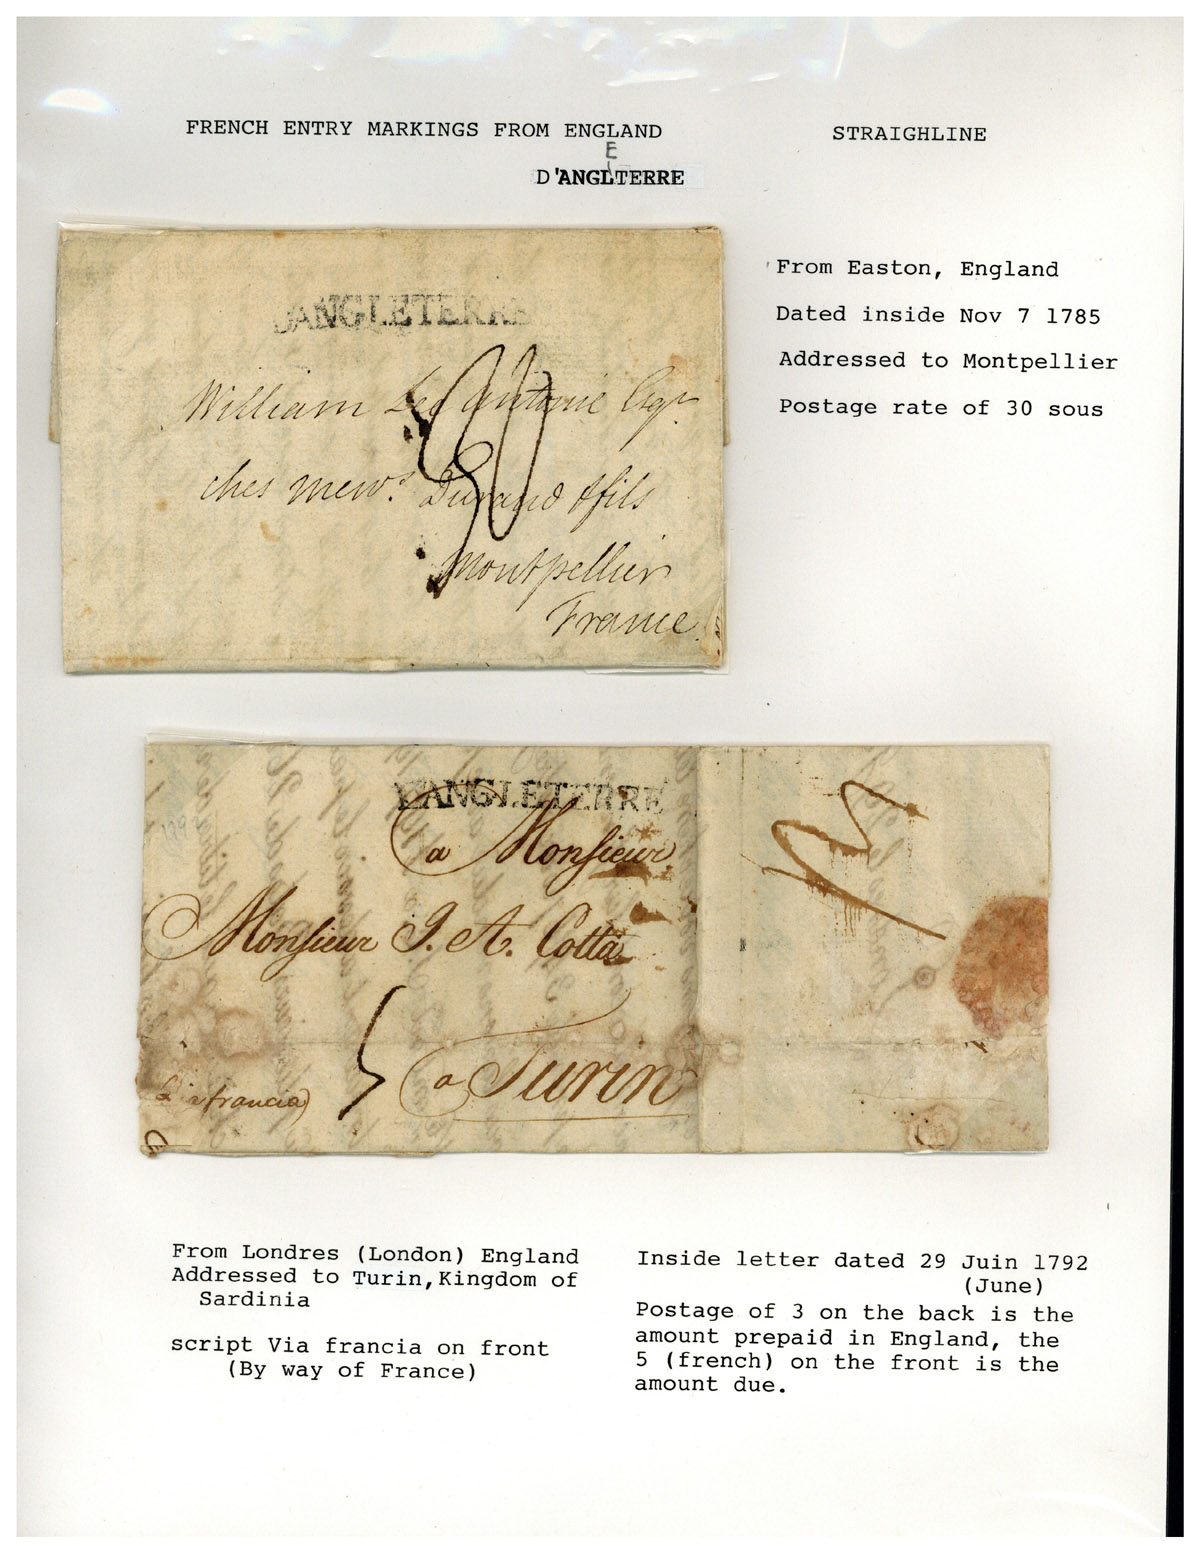 FRENCH ENTRY MARKINGS FROM ENGLAND
STRAIGHLINE
E
D'ANGLTERRE
D'ANGLETERRE
William Lee Antonie Esqr
30
ches mewrs. Durand & fils
Montpellier
France
From Easton, England
Dated inside Nov 7 1785
Addressed to Montpellier
Postage rate of 30 sous
D'ANGLETERRE
a Monsieur
Monsieur J. A. Cotta
5
a Turin
Via francia
3
From Londres (London) England
Addressed to Turin, Kingdom of
Sardinia
script Via francia on front
(By way of France)
Inside letter dated 29 Juin 1792
(June)
Postage of 3 on the back is the
amount prepaid in England, the
5 (french) on the front is the
amount due.